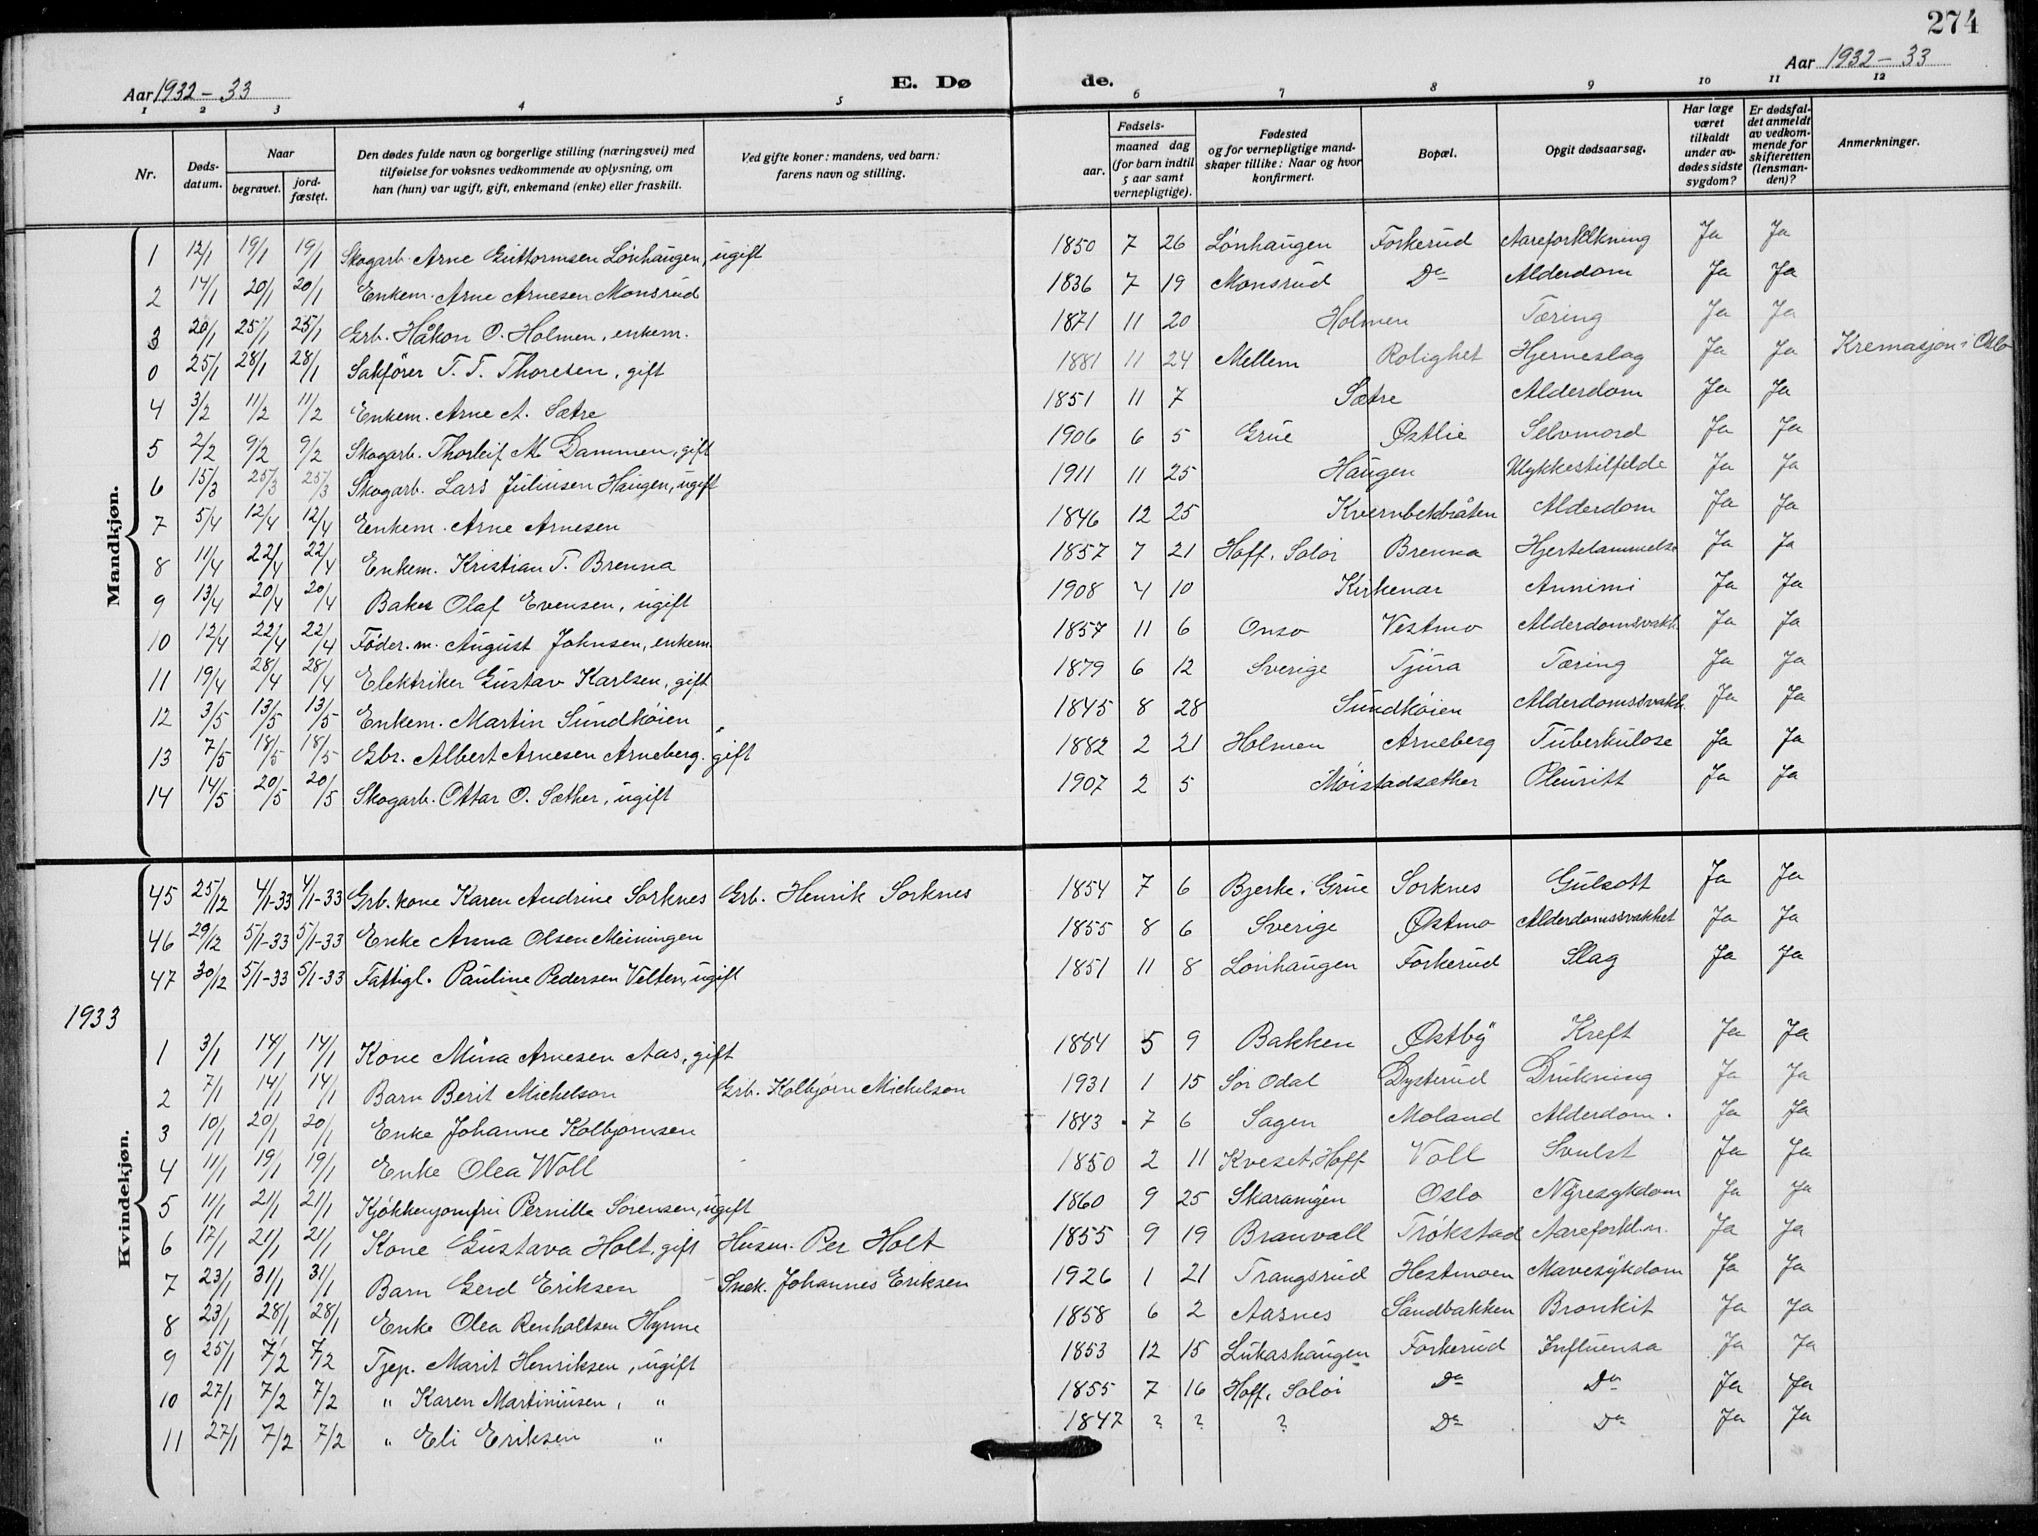 274
Aar 1932 - 33 E. Dø de. Aar 1932 - 33
1 2 3 4 5 6 7 8 9 10 11 12
Nr. Døds-datum. Naar begravet. jord-fæstet. Den dødes fulde navn og borgerlige stilling (næringsvei) med tilføielse for voksnes vedkommende av oplysning, om han (hun) var ugift, gift, enkemand (enke) eller fraskilt. Ved gifte koner: mandens, ved barn: farens navn og stilling. Fødsels- aar. maaned dag (for barn indtil 5 aar samt vernepligtige). Fødested og for vernepligtige mand-skaper tillike: Naar og hvor konfirmert. Bopæl. Opgit dødsaarsag. Har læge været tilkaldt under av-dødes sidste sygdom? Er dødsfal-det anmeldt av vedkom-mende for skifteretten (lensman-den)? Anmerkninger.
Mandkjøn.
1 12/1 19/1 19/1 Skogarb. Arne Guttormsen Lönhaugen, ugift 1850 7 26 Lönhaugen Forkerud Aareforkalkning Ja Ja
2 14/1 20/1 20/1 Enkem. Arne Arnesen Monsrud 1836 7 19 Monsrud Do Alderdom Ja Ja
3 20/1 25/1 25/1 Grb. Håkon O. Holmen, enkem. 1871 11 20 Holmen Tæring Ja Ja
0 25/1 28/1 28/1 Sakförer T. T. Thoresen, gift 1881 11 24 Mellem Rolighet Hjerneslag Ja Ja Kremasjon i Oslo
4 3/2 11/2 11/2 Enkem. Arne A. Sætre 1851 11 7 Sætre Alderdom Ja Ja
5 2/2 9/2 9/2 Skogarb. Thorleif M. Dammen, gift 1906 6 5 Grue Østlie Selvmord Ja Ja
6 15/3 25/3 25/3 Skogarb. Lars Juliusen Haugen, ugift 1911 11 25 Haugen Ulykkestilfelde Ja Ja
7 5/4 12/4 12/4 Enkem. Arne Arnesen 1846 12 25 Kvernbekbråten Alderdom Ja Ja
8 11/4 22/4 22/4 Enkem. Kristian T. Brenna 1857 7 21 Hoff, Solör Brenna Hjertelammelse Ja Ja
9 13/4 20/4 20/4 Baker Olaf Evensen, ugift 1908 4 10 Kirkenær Annimi Ja Ja
10 12/4 22/4 22/4 Föder.m. August Johnsen, enkem. 1857 11 6 Onso Vestmo Alderdomsvakh. Ja Ja
11 19/4 28/4 28/4 Elektriker Gustav Karlsen, gift 1879 6 12 Sverige Tjura Tæring Ja Ja
12 3/5 13/5 13/5 Enkem. Martin Sundköien 1845 8 28 Sundköien Alderdomssvakh. Ja Ja
13 7/5 18/5 18/5 Gbr. Albert Arnesen Arneberg. gift 1882 2 21 Holmen Arneberg Tuberkulose Ja Ja
14 14/5 20/5 20/5 Skogarb. Ottar O. Sæther, ugift 1907 2 5 Moistadsæther Pleuritt Ja Ja
Kvindekjøn.
45 25/12 4/1-33 4/1-33 Grb. kone Karen Andrine Sorknes Grb. Henrik Sorknes 1854 7 6 Bjerke, Grue Sorknes Gulsott Ja Ja
46 29/12 5/1-33 5/1-33 Enke Anna Olsen Meiningen 1855 8 6 Sverige Østmo Alderdomssvakhet Ja Ja
47 30/12 5/1-33 5/1-33 Fattigl. Pauline Pedersen Velten, ugift 1851 11 8 Lönhaugen Forkerud Slag Ja Ja
1933
1 3/1 14/1 14/1 Kone Mina Arnesen Aas, gift 1884 5 9 Bakken Østby Kreft Ja Ja
2 7/1 14/1 14/1 Barn Berit Michelson Grb. Kolbjørn Michelson 1931 1 15 Sör Odal Dysterud Drukning Ja Ja
3 10/1 20/1 20/1 Enke Johanne Kolbjørnsen 1843 7 6 Sagen Moland Alderdom. Ja Ja
4 11/1 19/1 19/1 Enke Olea Woll 1850 2 11 Kveset, Hoff Voll Svulst Ja Ja
5 11/1 21/1 21/1 Kjøkkenjomfru Pernille Sørensen, ugift 1860 9 25 Skarangen Oslo Nyresykdom Ja Ja
6 17/1 21/1 21/1 Kone Gustava Holt, gift Husm. Per Holt 1855 9 19 Branvall Trøkstad Aareforkl.n. Ja Ja
7 23/1 31/1 31/1 Barn Gerd Eriksen Snek. Johannes Eriksen 1926 1 21 Trangsrud Hestmoen Mavesykdom Ja Ja
8 23/1 28/1 28/1 Enke Olea Renholtsen Hynne 1858 6 2 Aasnes Sandbakken Bronkit Ja Ja
9 25/1 7/2 7/2 Tjep. Marit Henriksen, ugift 1853 12 15 Lukashaugen Forkerud Influensa Ja Ja
10 27/1 7/2 7/2 " Karen Martiniusen, " 1855 7 16 Hoff, Solör Do Do Ja Ja
11 27/1 7/2 7/2 " Eli Eriksen " 1847 ? ? ? Do Do Ja Ja